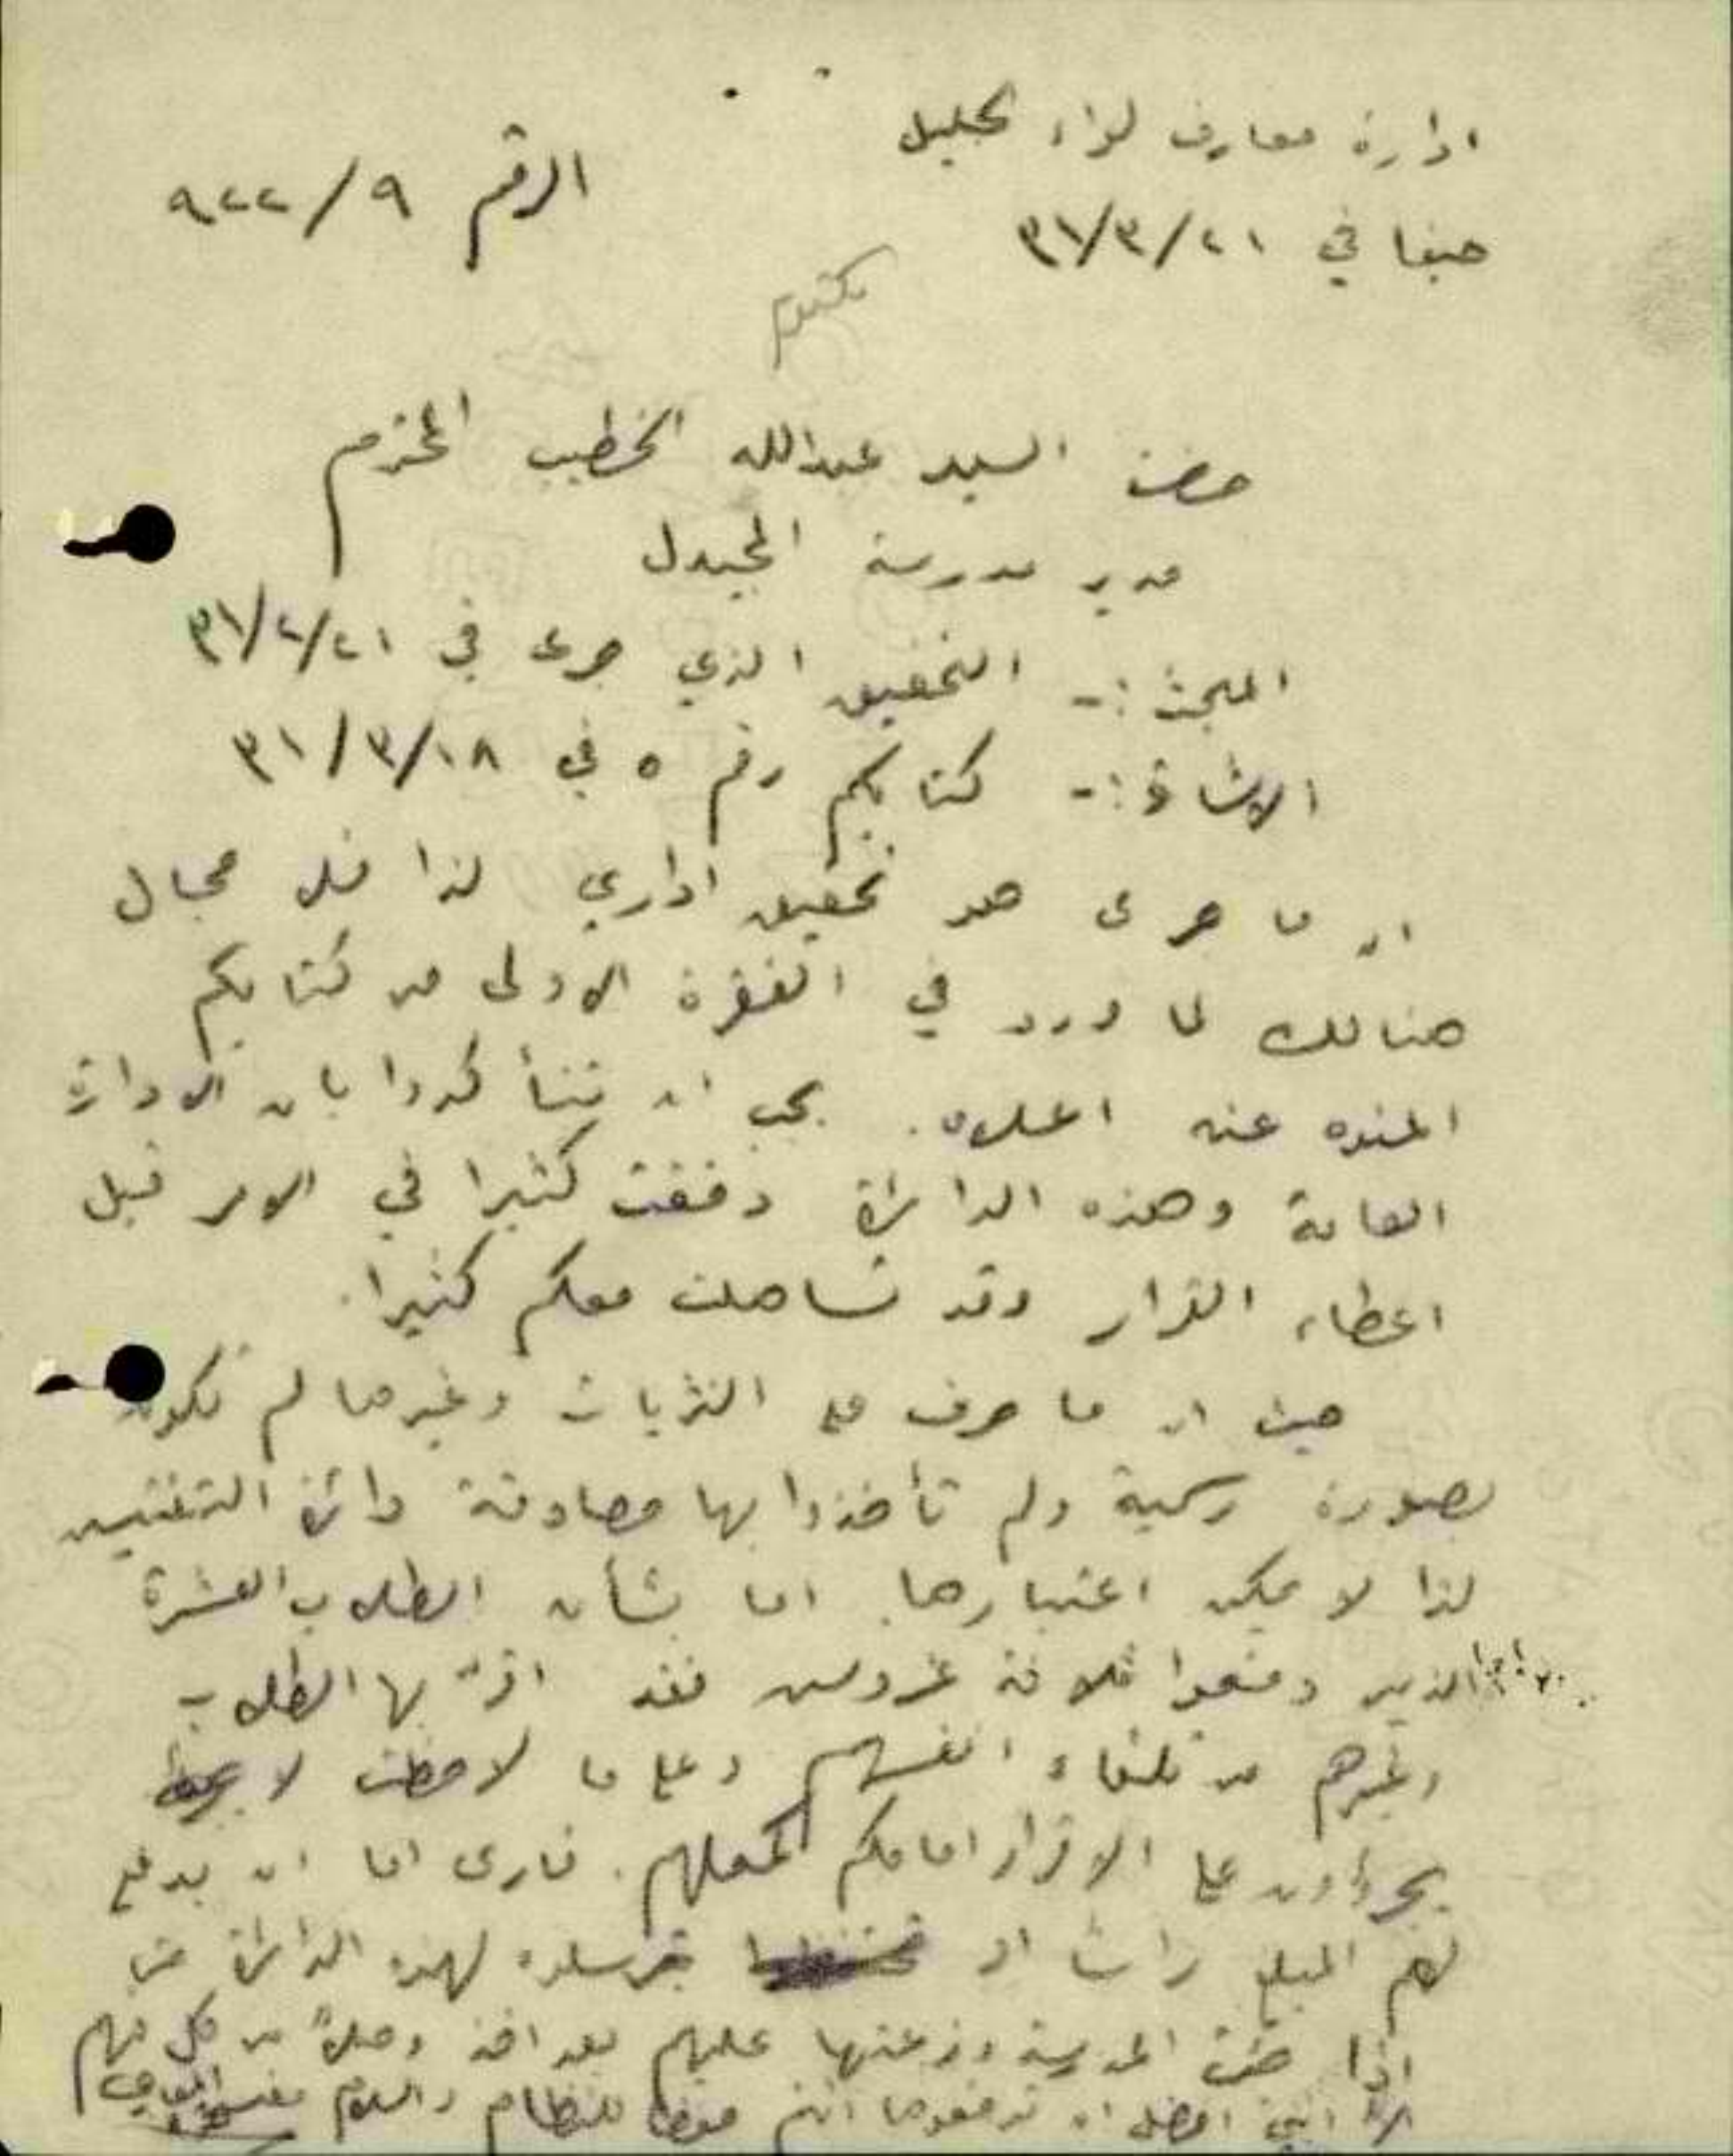 ادارة معارف لواء الجليل
الرقم ٩/٩٢٢
حيفا في ٣١/٣/٢١
مكتوم
حضرة السيد عبدالله الخطيب المحترم
مدير مدرسة المجيدل
المبحث :- التحقيق الذي جرى في ٣١/٢/٢١
الاشارة :- كتابكم رقم ٥ في ٣١/٣/١٨
ان ما جرى هو تحقيق اداري لذا فلا مجال
هنالك لما ورد في الفقرة الاولى من كتابكم
المنوه عنه اعلاه. يجب ان تتأكدوا بان الادارة
العامة وهذه الدائرة دققت كثيرا في الامر قبل
اعطاء القرار وقد تساهلت معكم كثيرا.
حيث ان ما صرف على النثريات وغيرها لم تكون
بصورة رسمية ولم تأخذوا بها مصادقة دائرة التفتيش
لذا لا يمكن اعتبارها. اما بشأن الطلاب العشرة
الذين دفعوا ثلاثة غروش فقد اقر بها الطلاب
وغيرهم من تلقاء انفسهم وعلى ما لاحظت لا
يجرؤون على الاقرار امامكم كمعلمهم. فارى اما ان يدفع
لهم المبلغ رأسا او ترسلوه لهذه الدائرة حتى
اذا جئت المدرسة وزعتها عليهم بعد اخذ وصلاً من كل منهم
الا انني افضل ان تدفعوها انتم حفظا للنظام والسلام مفتش المعارف